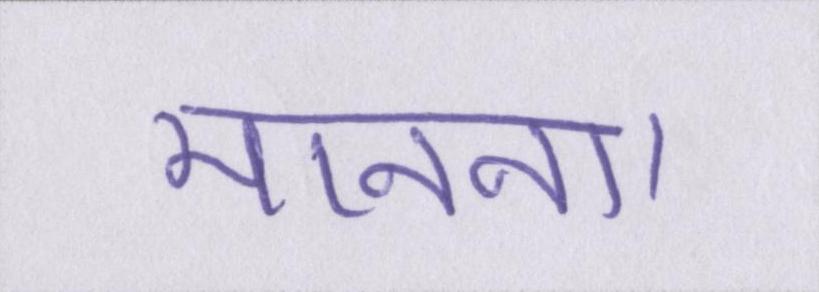 मानना।